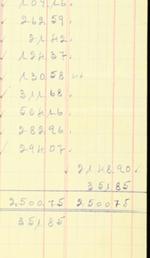 262 59.
21 42
124 37.
130 58
311 68
564 16
282 96
294 07
2148 90.
351 85
2,500 75 2,500 75
351 85